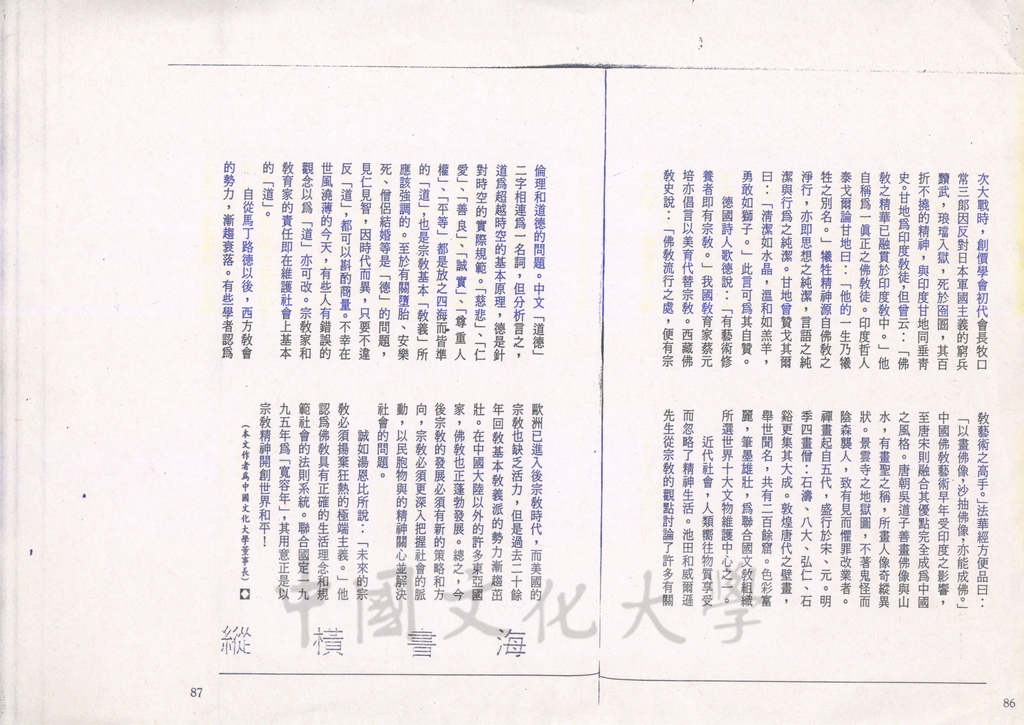 次大戰時，創價學會初代會長牧口
常三郎因反對日本軍國主義的窮兵
黷武，琅璫入獄，死於囹圄，其百
折不撓的精神，與印度甘地同垂青
史。甘地為印度教徒，但曾云：「佛
教之精華已融貫於印度教中。」他
自稱為一眞正之佛教徒。印度哲人
泰戈爾論甘地曰：「他的一生乃犧
牲之別名。」犧牲精神源自佛教之
淨行，亦即思想之純潔，言語之純
潔與行為之純潔。甘地曾贊戈其爾
曰：「清潔如水晶，溫和如羔羊，
勇敢如獅子。」此言可爲其自贊。
德國詩人歌德說：「有藝術修
養者即有宗教。」我國教育家蔡元
培亦倡言以美育代替宗教。西藏佛
教史說：「佛教流行之處，便有宗
教藝術之高手。」法華經方便品曰：
「以畫佛像，沙抽佛像，亦能成佛。」
中國佛教藝術早年受印度之影響，
至唐宋則融合其優點完全成爲中國
之風格。唐朝吳道子善畫佛像與山
水，有畫聖之稱，所畫人像奇縱異
狀。景雲寺之地獄圖，不著鬼怪而
陰森襲人，致有見而懼罪改業者。
禪畫起自五代，盛行於宋、元。明
季四畫僧：石濤、八大、弘仁、石
谿更集其大成。敦煌唐代之壁畫，
舉世聞名，共有二百餘窟。色彩富
麗，筆墨雄壯，爲聯合國文教組織
所選世界十大文物維護中心之一。
近代社會，人類嚮往物質享受
而忽略了精神生活。池田和威爾遜
先生從宗教的觀點討論了許多有關
86
倫理和道德的問題。中文「道德」
二字相連爲一名詞，但分析言之，
道爲超越時空的基本原理，德是針
對時空的實際規範。「慈悲」、「仁
愛」、「善良」、「誠實」、「尊重人
權」、「平等」都是放之四海而皆準
的「道」，也是宗教基本「教義」所
應該強調的。至於有關墮胎、安樂
死、僧侶結婚等是「德」的問題，
見仁見智，因時代而異，只要不違
反「道」，都可以斟酌商量。不幸在
世風澆薄的今天，有些人有錯誤的
觀念以爲「道」亦可改。宗教家和
教育家的責任即在維護社會上基本
的「道」。
自從馬丁路德以後，西方教會
的勢力，漸趨衰落。有些學者認爲
歐洲已進入後宗教時代，而美國的
宗教也缺乏活力，但是過去二十餘
年回教基本教義派的勢力漸趨茁
壯。在中國大陸以外的許多東亞國
家，佛教也正蓬勃發展。總之，今
後宗教的發展必須有新的策略和方
向，宗教必須更深入把握社會的脈
動，以民胞物與的精神關心並解決
社會的問題。
誠如湯恩比所說：「未來的宗
教必須揚棄狂熱的極端主義。」他
認爲佛教具有正確的生活理念和規
範社會的法則系統。聯合國定一九
九五年爲「寬容年」，其用意正是以
宗教精神開創世界和平！
（本文作者爲中國文化大學董事長）
87
中國文化大學
縱橫書海